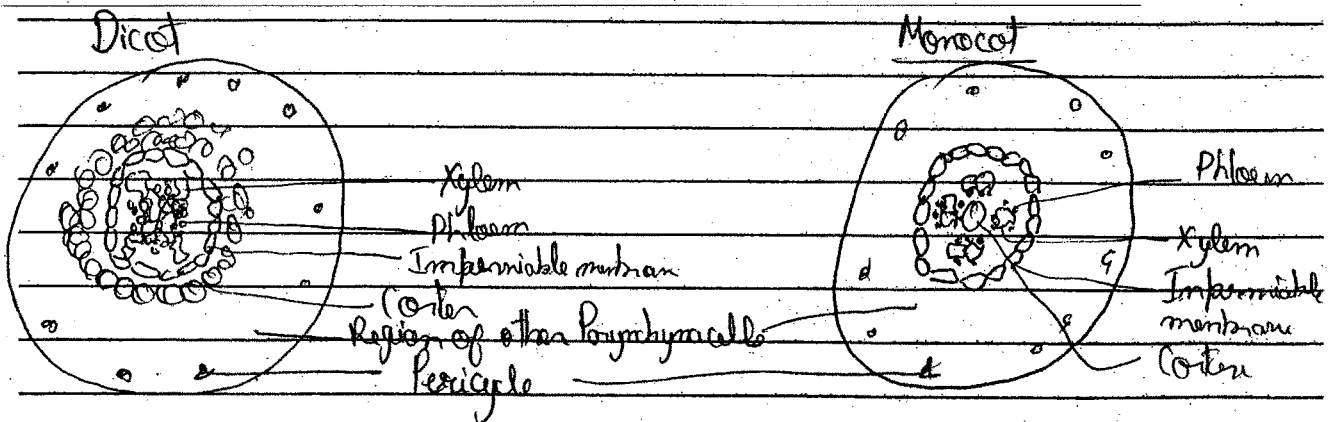 Dicot
Monocot
Xylem
Phloem
Impermiable membran
Cortex
Region of other Parynchyma cells
Pericycle
Phloem
Xylem
Impermiable
membrane
Cortex